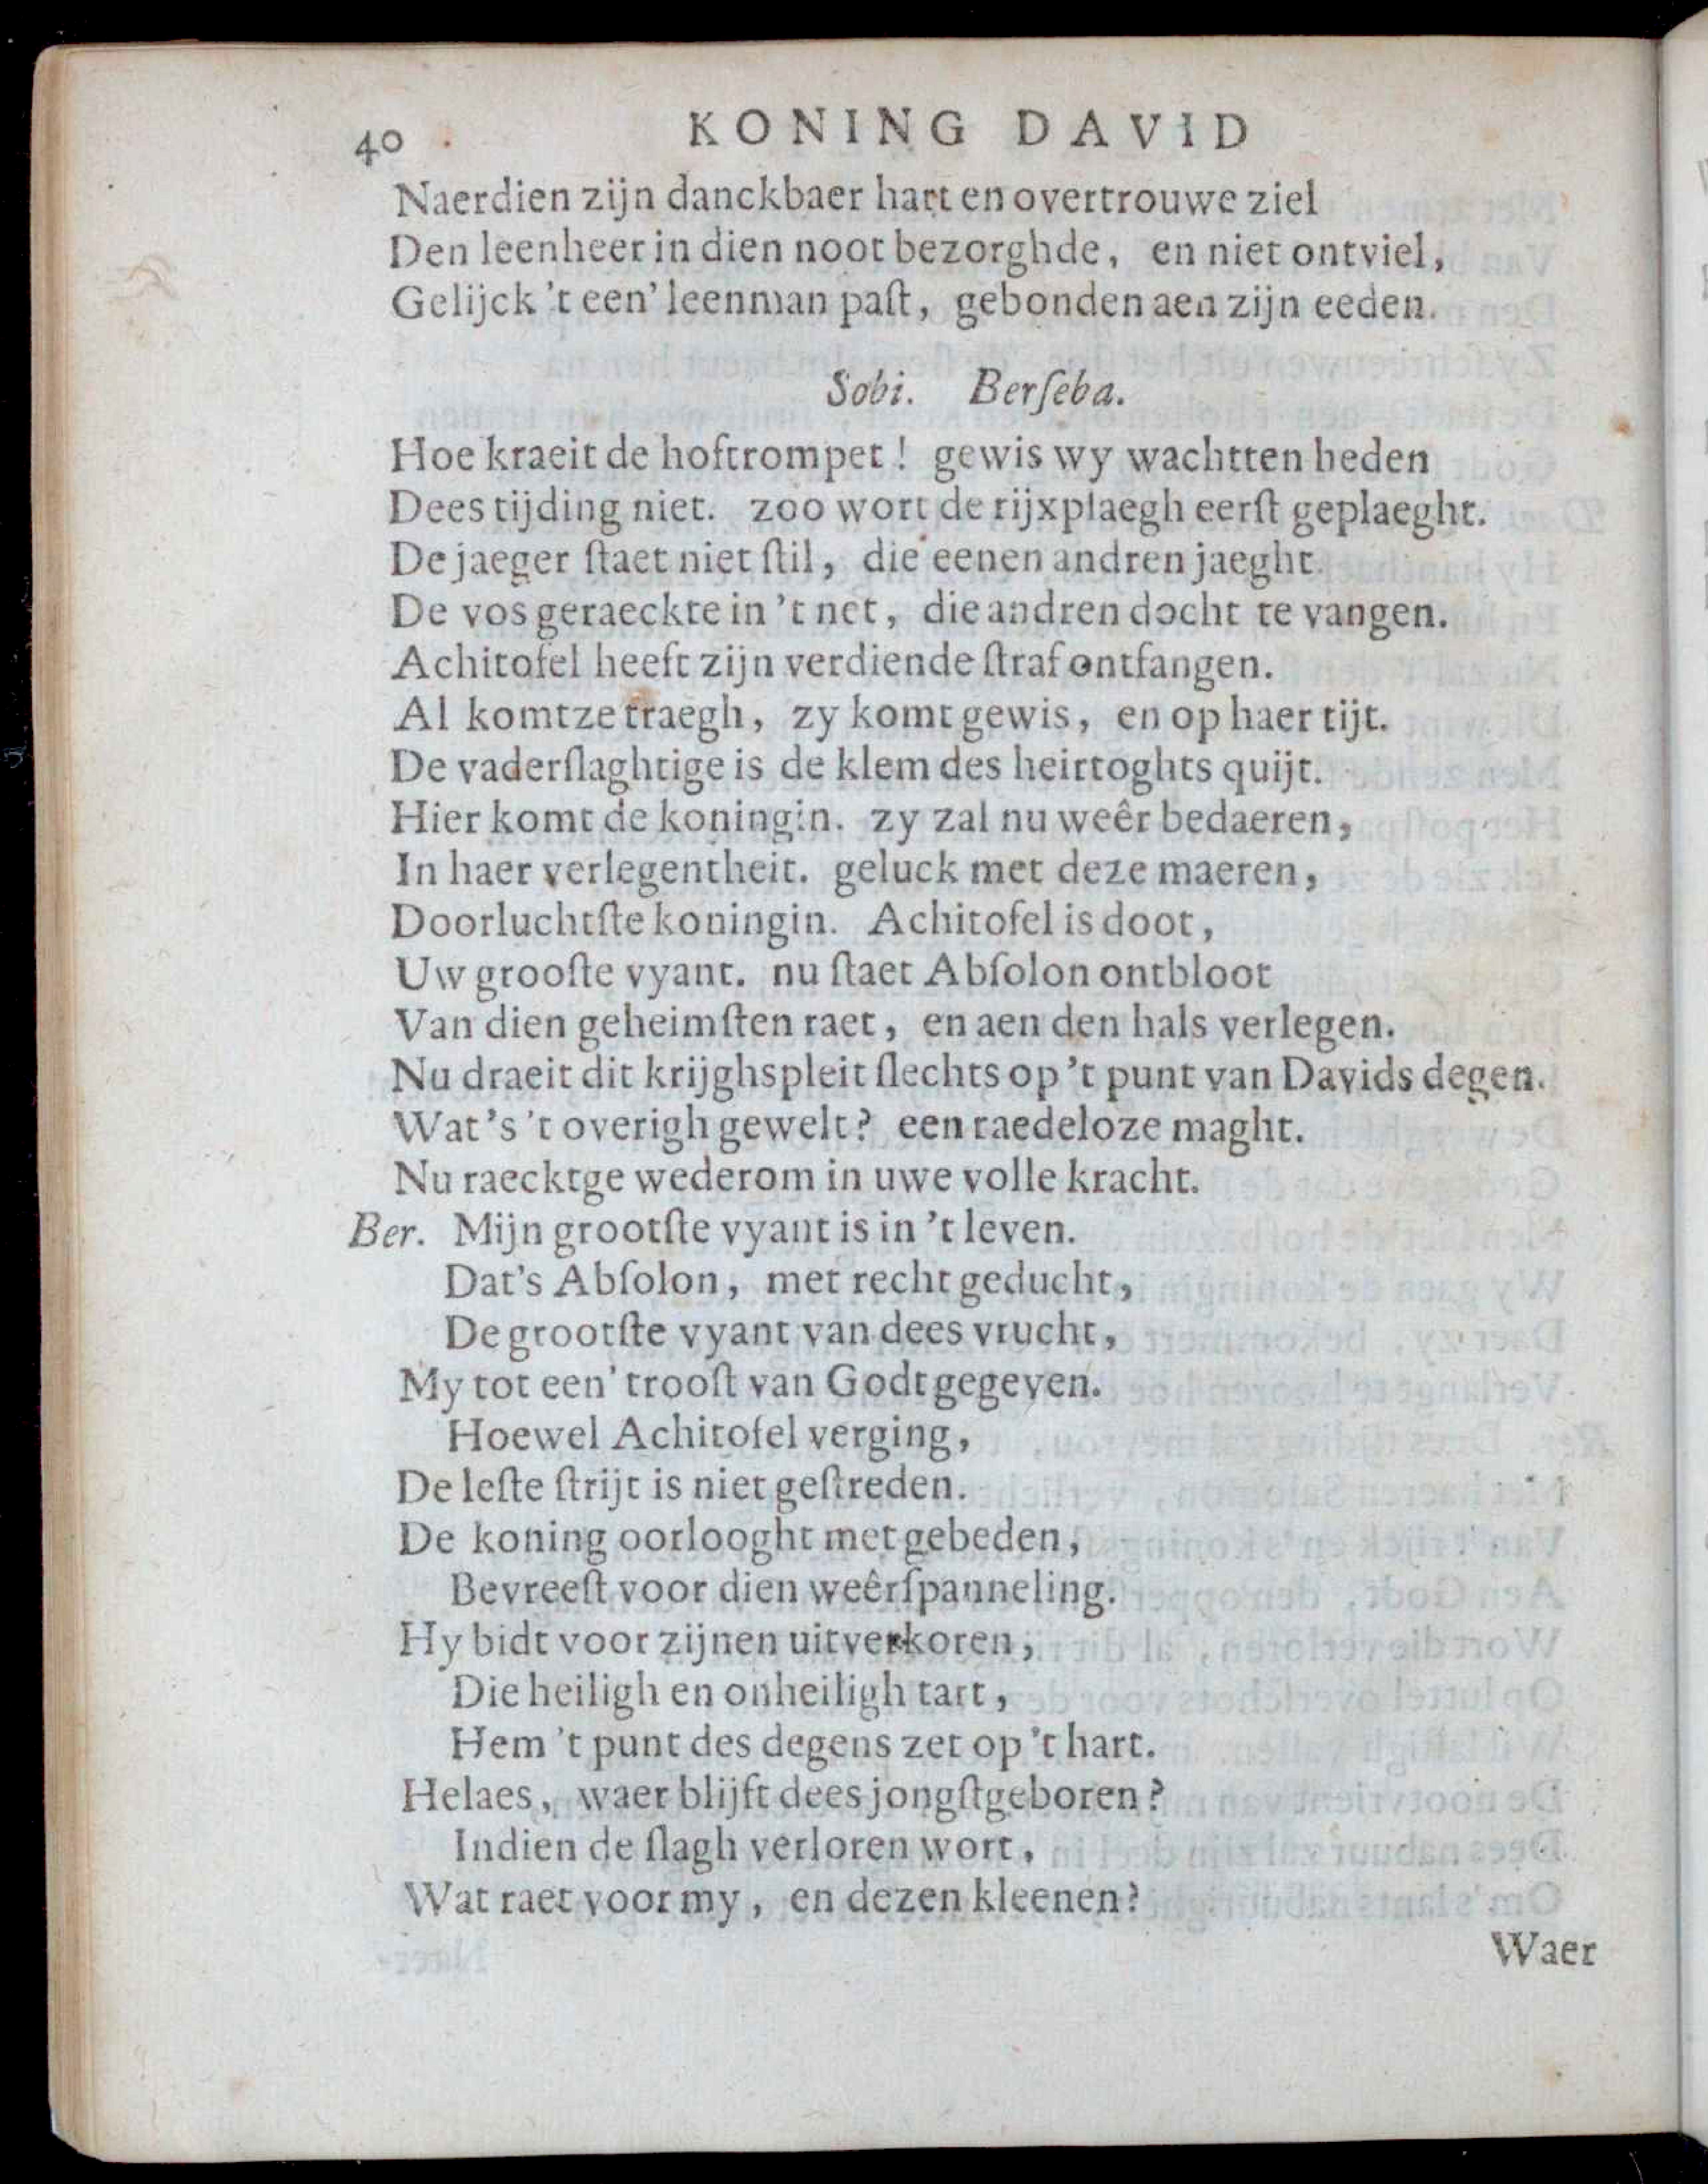 40 KONING DAVID
Naerdien zijn danckbaer hart en overtrouwe ziel
Den leenheer in dien noot bezorghde, en niet ontviel,
Gelijck 't een' leenman paſt, gebonden aen zijn eeden.
Sobi. Berſeba.
Hoe kraeit de hoftrompet! gewis wy wachtten heden
Dees tijding niet. zoo wort de rijxplaegh eerſt geplaeght.
De jaeger ſtaet niet ſtil, die eenen andren jaeght.
De vos geraeckte in 't net, die andren docht te vangen.
Achitofel heeft zijn verdiende ſtraf ontfangen.
Al komtze traegh, zy komt gewis, en op haer tijt.
De vaderſlaghtige is de klem des heirtoghts quijt.
Hier komt de koningin. zy zal nu weêr bedaeren,
In haer verlegentheit. geluck met deze maeren,
Doorluchtſte koningin. Achitofel is doot,
Uw grooſte vyant. nu ſtaet Abſolon ontbloot
Van dien geheimſten raet, en aen den hals verlegen.
Nu draeit dit krijghspleit ſlechts op 't punt van Davids degen.
Wat's 't overigh gewelt? een raedeloze maght.
Nu raecktge wederom in uwe volle kracht.
Ber. Mijn grootſte vyant is in 't leven.
Dat's Abſolon, met recht geducht,
De grootſte vyant van dees vrucht,
My tot een' trooſt van Godt gegeven.
Hoewel Achitofel verging,
De leſte ſtrijt is niet geſtreden.
De koning oorlooght met gebeden,
Bevreeſt voor dien weêrſpanneling.
Hy bidt voor zijnen uitverkoren,
Die heiligh en onheiligh tart,
Hem 't punt des degens zet op 't hart.
Helaes, waer blijft dees jongſtgeboren?
Indien de ſlagh verloren wort,
Wat raet voor my, en dezen kleenen?
Waer